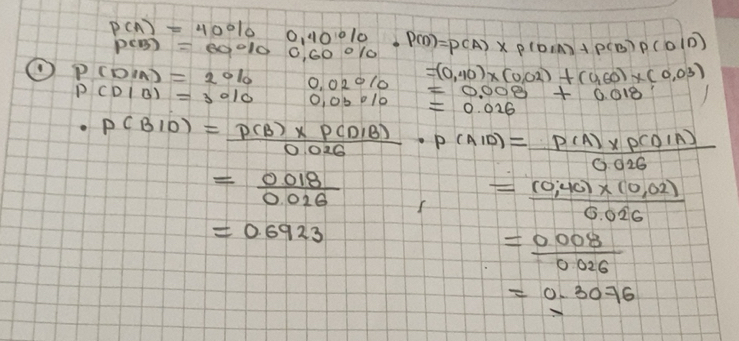 P(A) = 40% 0,40% • P(D)=P(A) x P(D|A) + P(B) P(D|D)
P(B) = 60% 0,60%
① P(D|A) = 2% 0,02% =(0,40)x(0,02) + (0,60)x(0,03)
P(D|B) = 3% 0,03% = 0.008 + 0.018
= 0.026
• P(B|D) = P(B) x P(D|B)
0.026
= 0.018
0.026
= 0.6923
• P(A|D) = P(A) x P(D|A)
0.026
= (0,40) x (0,02)
0.026
= 0.008
0.026
= 0.3076